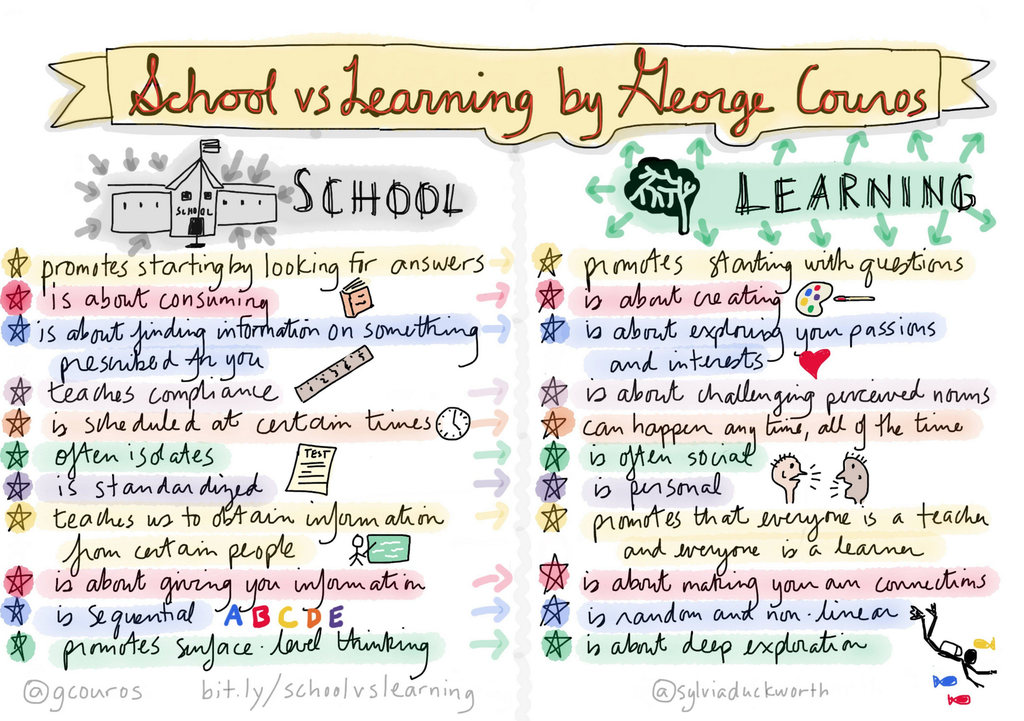 School vs Learning by George Couros
SCHOOL
SCHOOL
promotes starting by looking for answers
is about consuming
is about finding information on something
prescribed for you
teaches compliance
1 2 3 4 5 6
is scheduled at certain times
often isolates
TEST
is standardized
teaches us to obtain information
from certain people
is about giving you information
is sequential A B C D E
promotes surface-level thinking
@gcouros bit.ly/schoolvslearning
LEARNING
promotes starting with questions
is about creating
is about exploring your passions
and interests
is about challenging perceived norms
can happen any time, all of the time
is often social
is personal
promotes that everyone is a teacher
and everyone is a learner
is about making your own connections
is random and non-linear
is about deep exploration
@sylviaduckworth